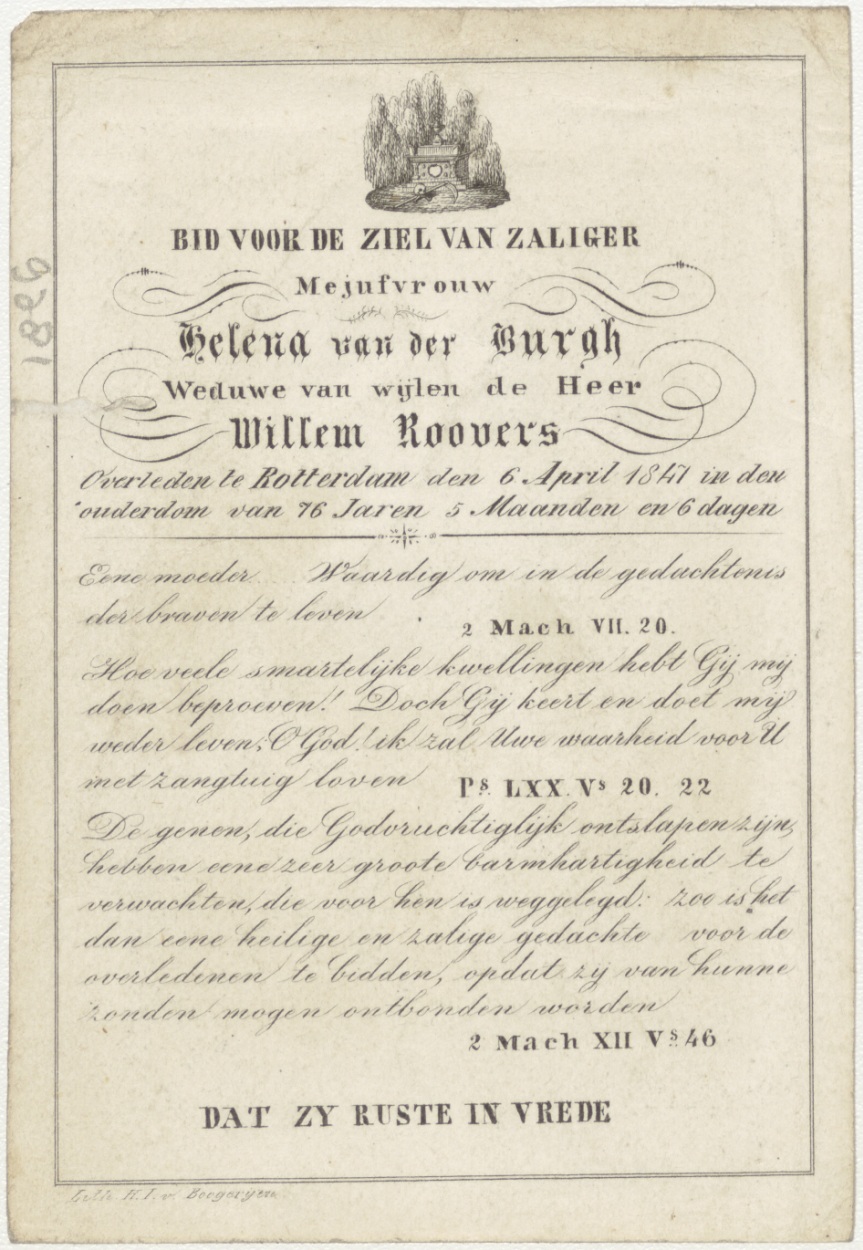 BID VOOR DE ZIEL VAN ZALIGER
Mejufvrouw
Helena van der Burgh
Weduwe van wijlen de Heer
Willem Roovers
Overleden te Rotterdam den 6 April 1847 in den
ouderdom van 76 Jaren 5 Maanden en 6 dagen
Eene moeder... Waardig om in de gedachtenis
der braven te leven
2 Mach VII. 20.
Hoe veele smartelijke kwellingen hebt Gij mij
doen beproeven! Doch Gij keert en doet mij
weder leven; O God! ik zal Uwe waarheid voor U
met zangtuig loven
Ps. LXX. Vs 20. 22
De genen, die Godvruchtiglijk ontslapen zijn,
hebben eene zeer groote barmhartigheid te
verwachten, die voor hen is weggelegd: zoo is het
dan eene heilige en zalige gedachte voor de
overledenen te bidden, opdat zij van hunne
zonden mogen ontbonden worden
2 Mach XII Vs. 46
DAT ZY RUSTE IN VREDE
Lith. H. I. v.
1826